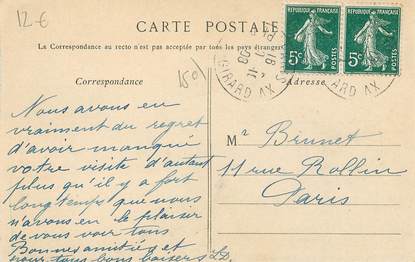 12 €
CARTE POSTALE
La Correspondance au recto n'est pas acceptée par tous les pays étrangers
RÉPUBLIQUE FRANÇAISE
5c
RÉPUBLIQUE FRANÇAISE
5c
GIRARD XV
Correspondance
1501
Adresse
Nous avons eu
vraiment du regret
d'avoir manqué
votre visite d'autant
plus qu'il y a fort
longtemps que nous
n'avons eu le plaisir
de vous voir tous
Bonne amitié et
pour tous bons baisers L.D.
Mr Brunet
11 rue Rollin
Paris